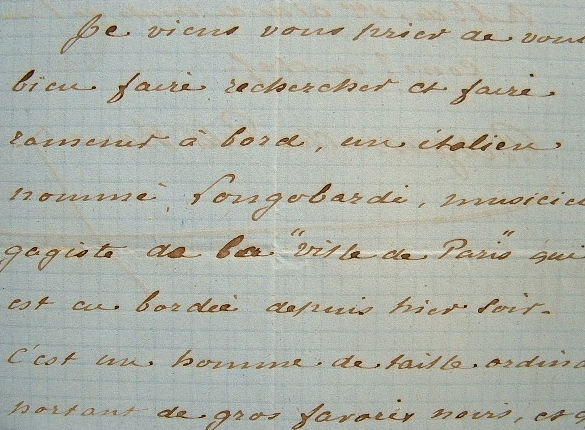 Je viens vous prier de vou
bien faire rechercher et faire
ramener à bord, un italien
nommé, Longobardi, musicie
gagiste de la "Ville de Paris" qui
est en bordée depuis hier soir.
C'est un homme de taille ordina
portant de gros favoris noirs, et